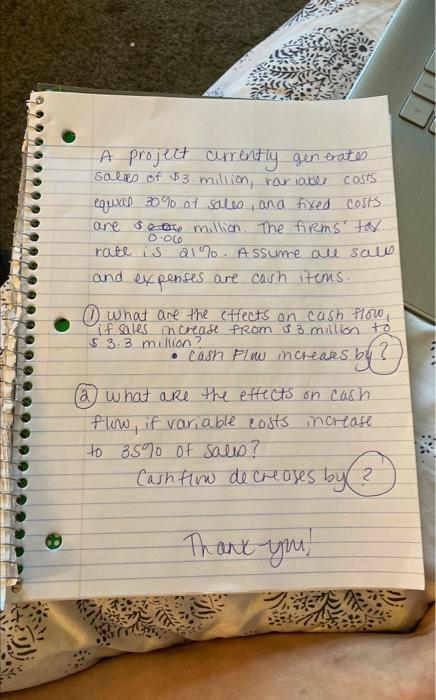 A project currently generates
sales of $3 million, variable costs
equal 30% of sales, and fixed costs
are $ million. The firms' tax
0.06
rate is 21%. Assume all sales
and expenses are cash items.
① what are the effects on cash flow,
if sales increase from $3 million to
$3.3 million?
• Cash Flow increases by ?
② what are the effects on cash
flow, if variable costs increase
to 35% of sales?
Cashflow decreases by ?
Thank you!